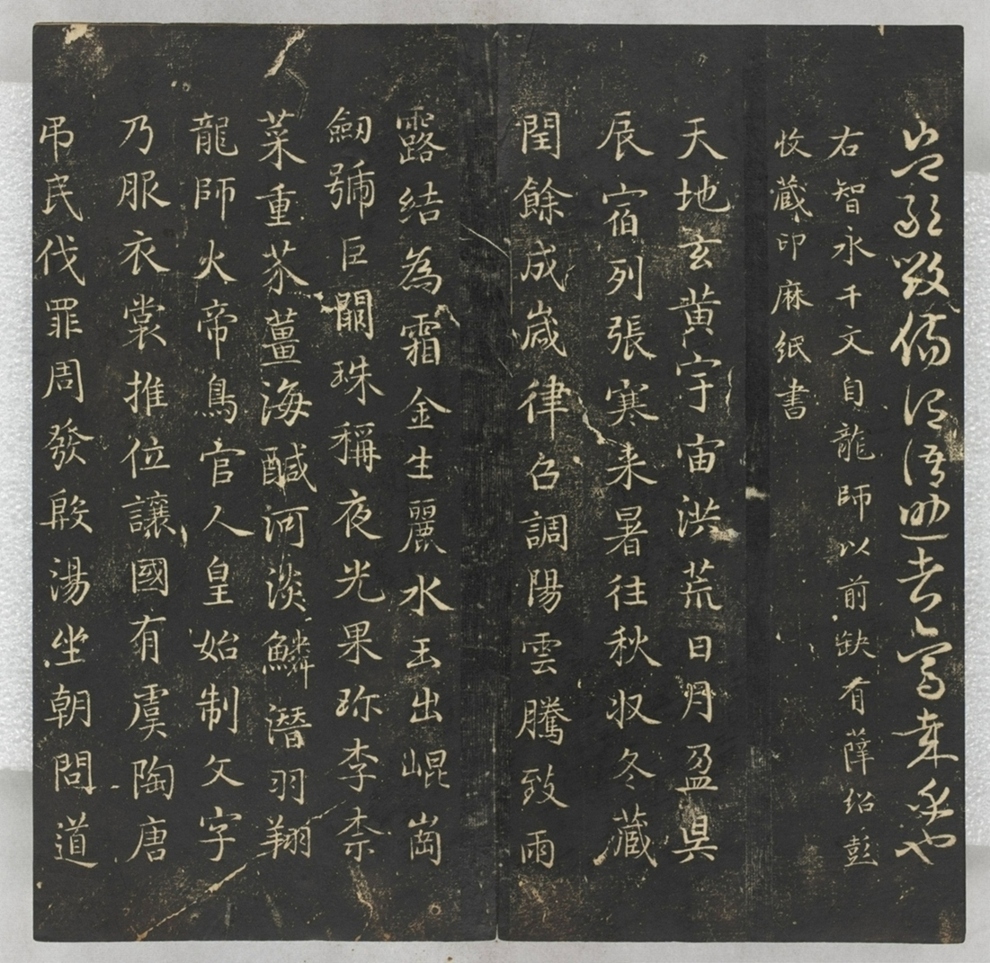 豈敢毀傷謂語助者焉哉乎也
右智永千文自龍師以前缺有薛紹彭
收藏印麻紙書
天地玄黃宇宙洪荒日月盈昃
辰宿列張寒来暑往秋収冬藏
閏餘成歲律召調陽雲騰致雨
露結為霜金生麗水玉出崐崗
劒號巨闕珠稱夜光果珎李柰
菜重芥薑海鹹河淡鱗潛羽翔
龍師火帝鳥官人皇始制文字
乃服衣裳推位讓國有虞陶唐
吊民伐罪周發殷湯坐朝問道